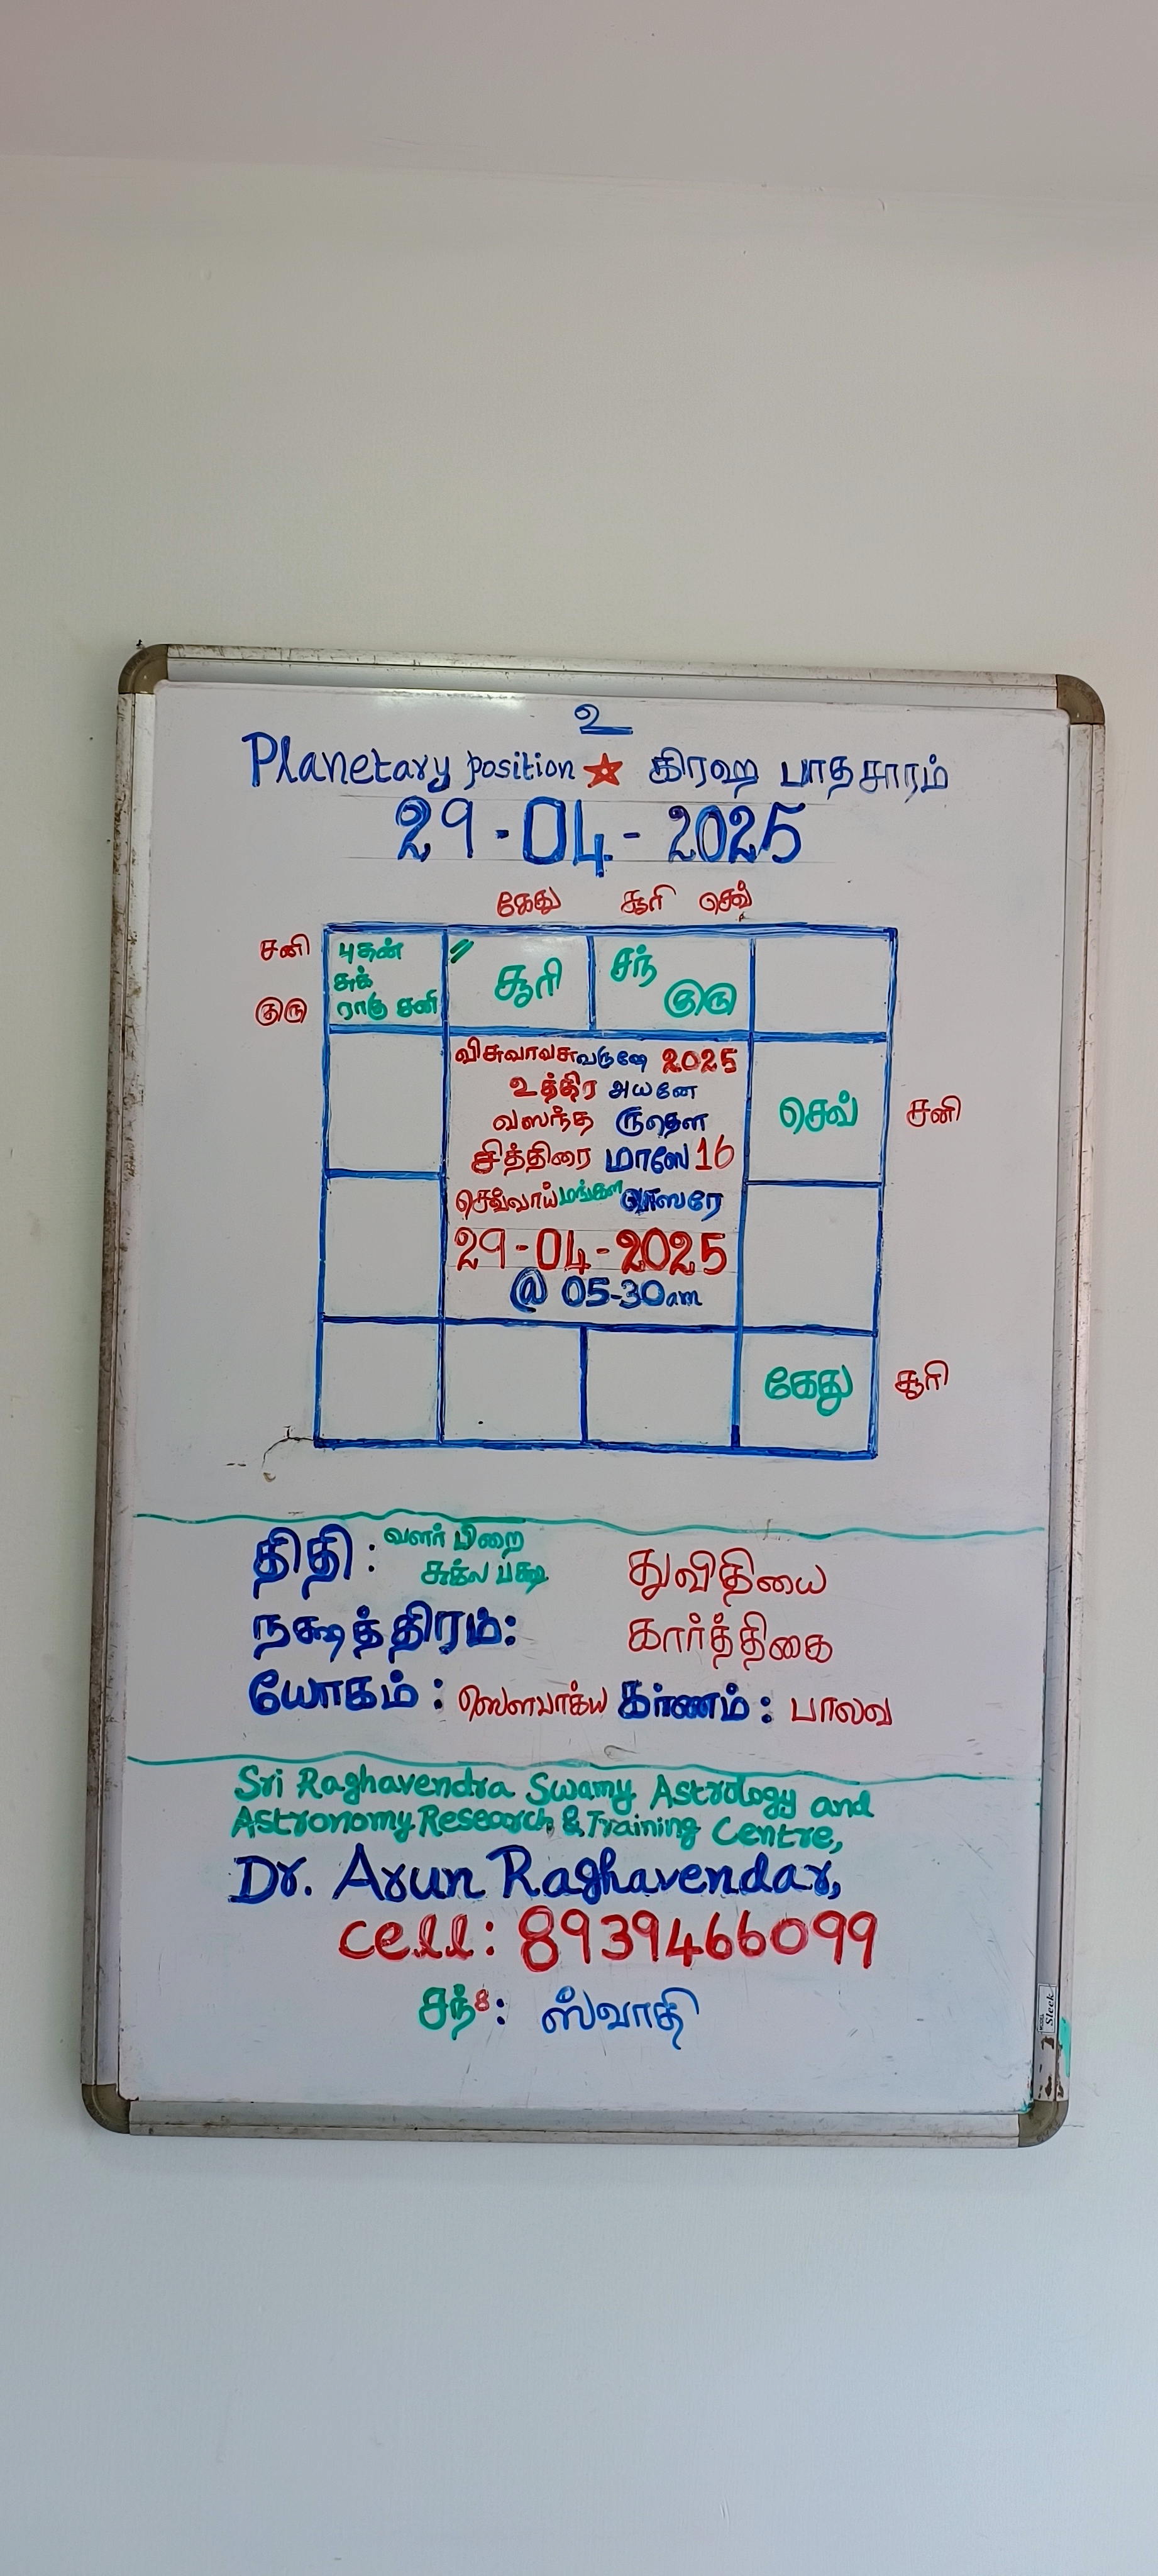 உ
Planetary position ★ கிரஹ பாதசாரம்
29-04-2025
கேது சூரி செவ்
சனி
குரு
புதன்
சுக்
ராகு சனி
〃
சூரி
சந்
குரு
விசுவாவசுவருஷே 2025
உத்திர அயனே
வஸந்த ருதௌ
சித்திரை மாஸே 16
செவ்வாய் மங்கள வாஸரே
29-04-2025
@ 05-30am
செவ்
சனி
கேது
சூரி
திதி : வளர் பிறை
சுக்ல பக்ஷ துவிதியை
நக்ஷத்திரம்: கார்த்திகை
யோகம் : ஸௌபாக்ய கர்ணம் : பாலவ
Sri Raghavendra Swamy Astrology and
Astronomy Research & Training Centre,
Dr. Arun Raghavendar,
cell: 8939466099
சந்8: ஸ்வாதி
Sleek